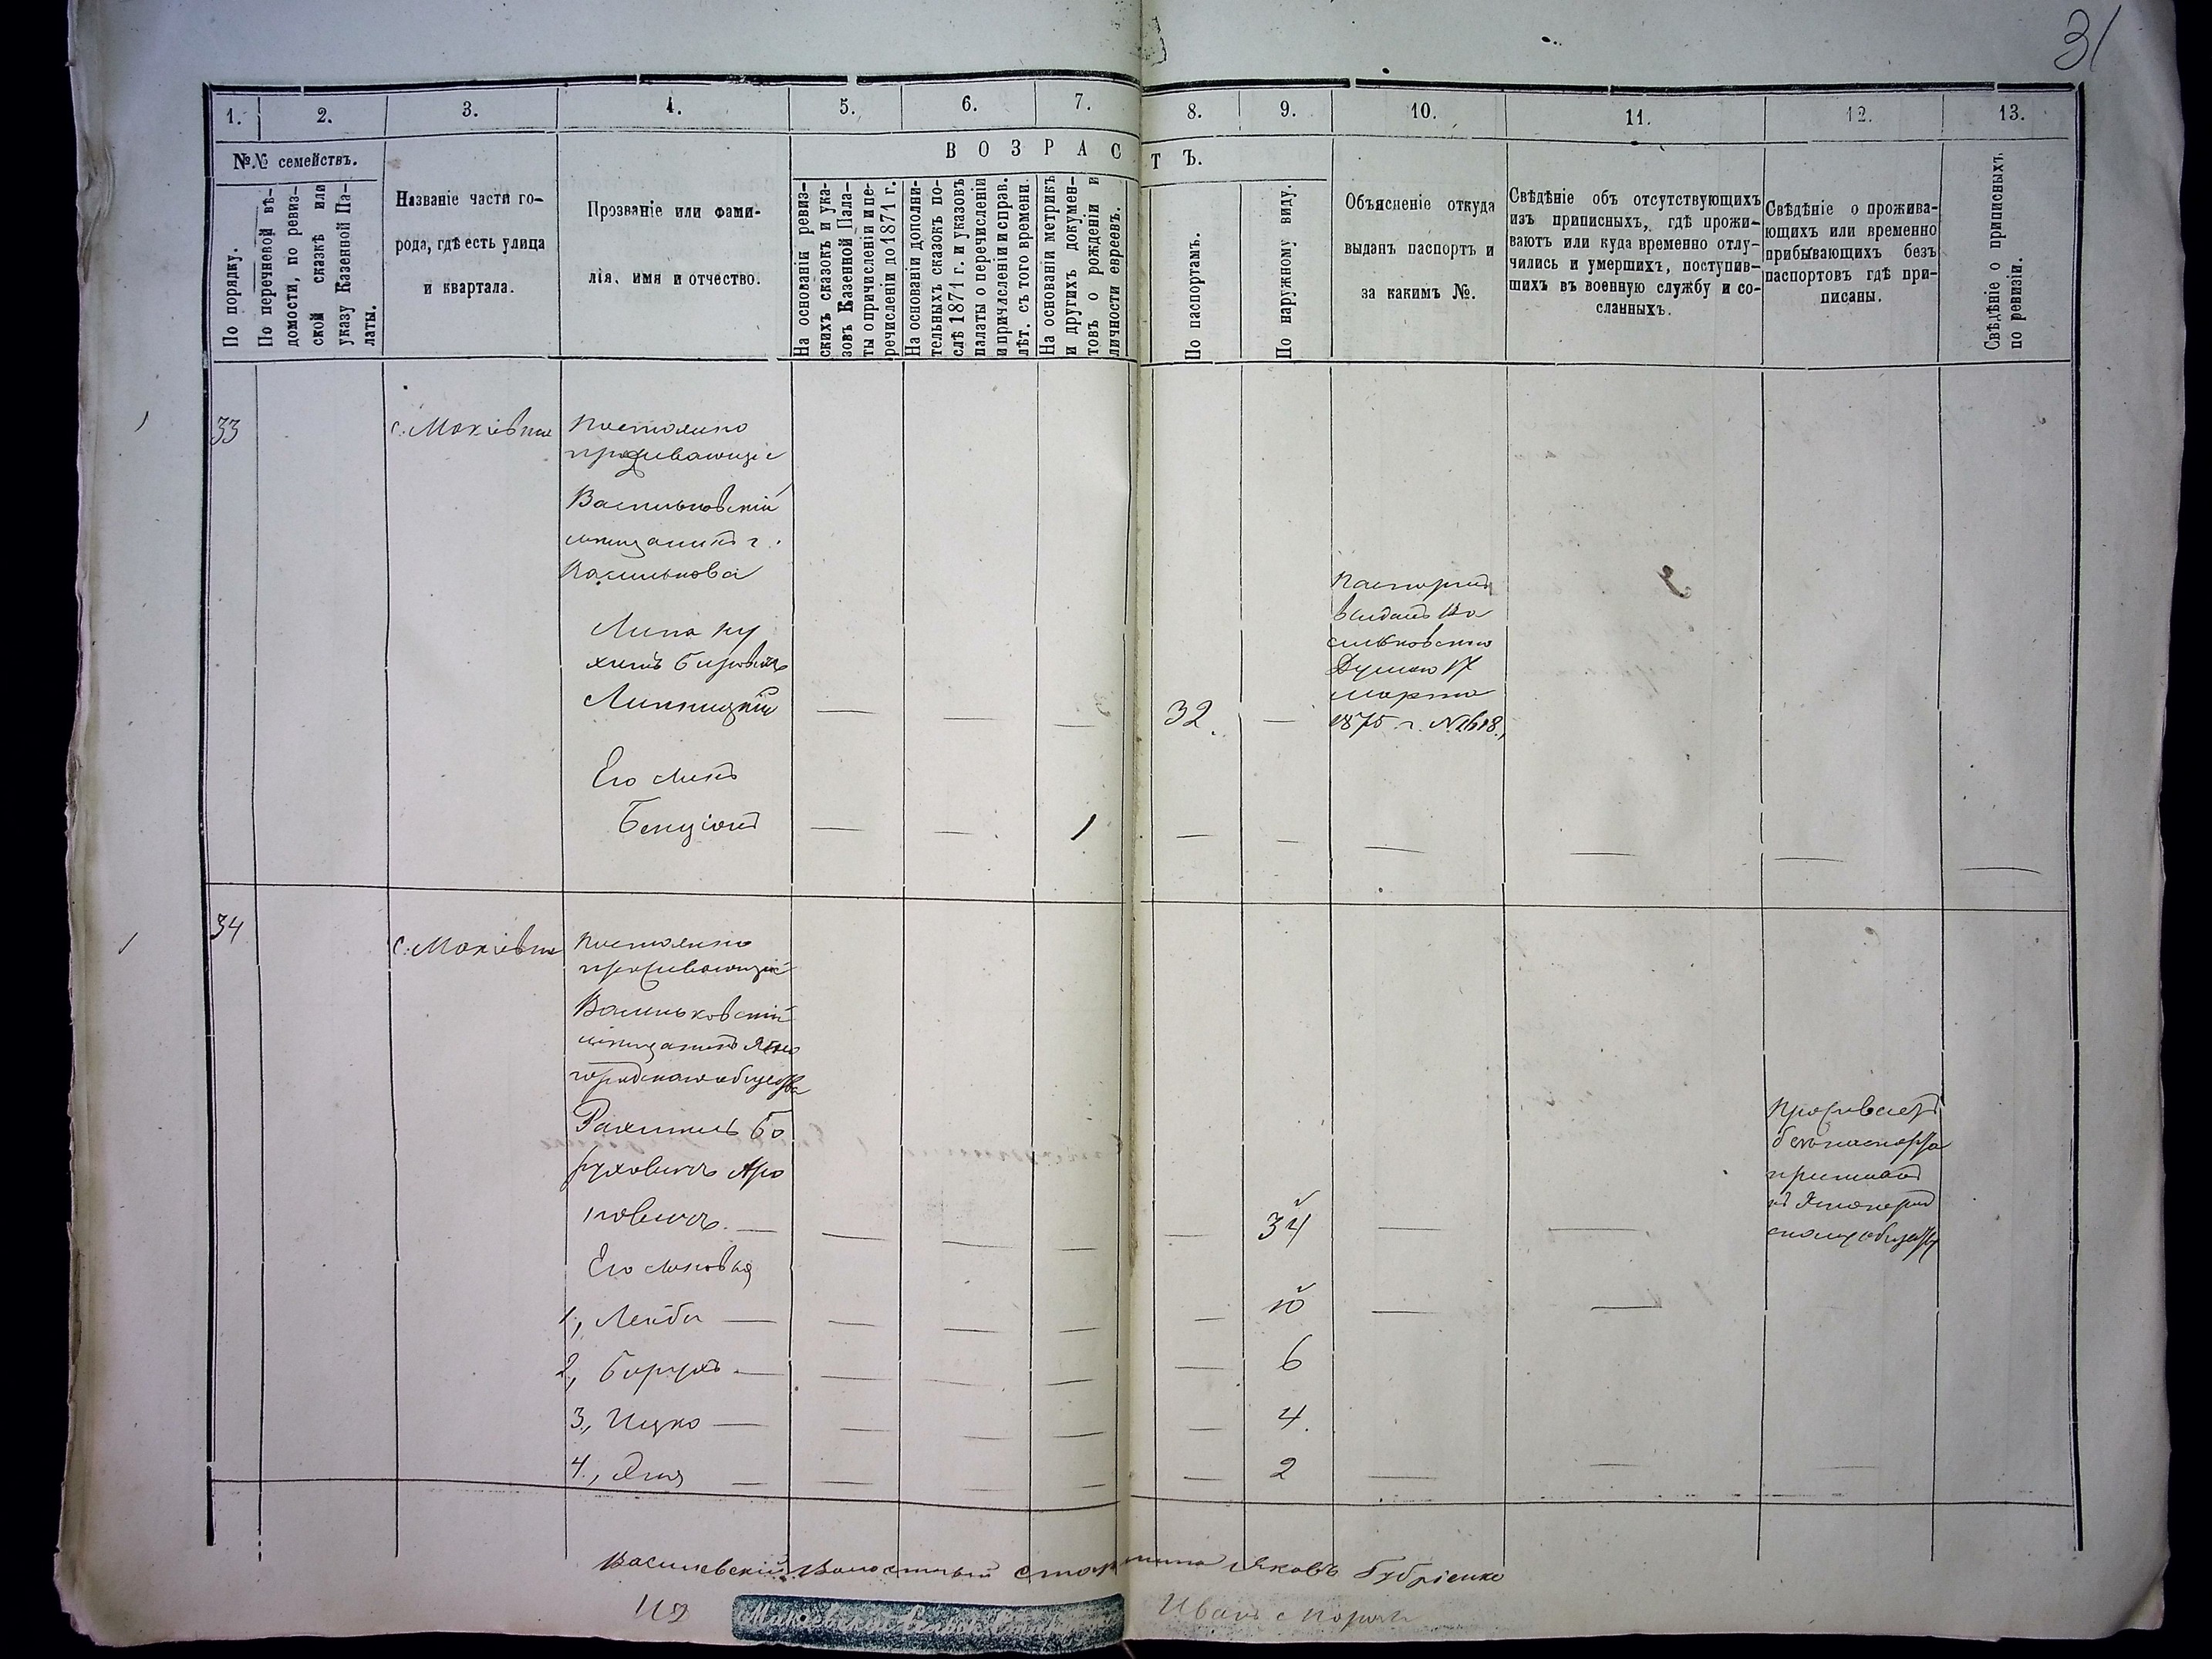 31
1. 2. 3. 4. 5. 6. 7. 8. 9. 10. 11. 12. 13.
№№ семействъ.
В О З Р А С Т Ъ.
По порядку.
По перечневой вѣ-
домости, по ревиз-
ской сказкѣ или
указу Казенной Па-
латы.
Названіе части го-
рода, гдѣ есть улица
и квартала.
Прозваніе или фами-
лія, имя и отчество.
На основаніи ревиз-
скихъ сказокъ и ука-
зовъ Казенной Пала-
ты о причисленіи и пе-
речисленіи до 1871 г.
На основаніи дополни-
тельныхъ сказокъ по-
слѣ 1871 г. и указовъ
палаты о перечисленіи
и причисленіи и справ.
лѣт. съ того времени.
На основаніи метрикъ
и другихъ докумен-
товъ о рожденіи и
личности евреевъ.
По паспортамъ.
По наружному виду.
Объясненіе откуда
выданъ паспортъ и
за какимъ №.
Свѣдѣніе объ отсутствующихъ
изъ приписныхъ, гдѣ прожи-
ваютъ или куда временно отлу-
чились и умершихъ, поступив-
шихъ въ военную службу и со-
сланныхъ.
Свѣдѣніе о прожива-
ющихъ или временно
прибывающихъ безъ
паспортовъ гдѣ при-
писаны.
Свѣдѣніе о приписныхъ
по ревизіи.
33
с. Макіевка
Постоянно
проживающіе
Васильковскій
мѣщанинъ г.
Василькова
Липа Ну
химъ Берковъ
Липницкій — — — 32. —
Паспортъ
выданъ Ва
сильковскою
Думою 17
марта
1875 г. №
Его сынъ
Бенціонъ — — 1 — — — — — —
34
с. Макіевка
Постоянно
проживающіе
Васильковскій
мѣщанинъ Ясно
городскаго общества
Рахмиль Бо
руховичъ Аро
новичъ — — — — — 34 — —
Проживаетъ
безъ паспорта
приписанъ
къ Ясногород
скому обществу
Его сыновья
1, Лейба — — — — — 10 — —
2, Борухъ — — — — — 6
3, Ицко — — — — — 4.
4, — — — — — 2 — — —
Волостный Старшина Яковъ
Иванъ